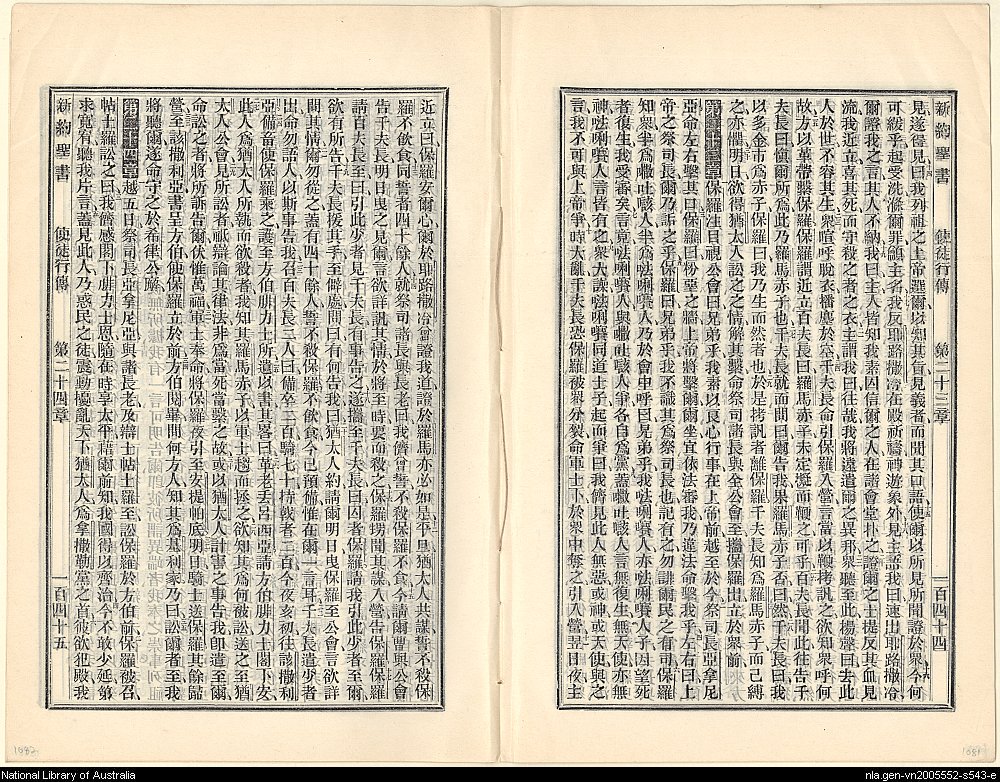 新約聖書 使徒行傳 第二十三章 一百四十四
見遂得見曰我列祖之上帝選爾以知其旨見義者而聞其口語使爾以所見所聞證於衆今何
可緩乎起受洗滌爾罪籲主名我反耶路撒冷在殿祈禱神遊象外見主語我曰速出耶路撒冷
爾證我之言其人不納我曰主人皆知我素囚信爾之人在諸會堂扑之證爾之士提反其血見
流我近立喜其死而守殺之者之衣主謂我曰往哉我將遠遣爾之異邦衆聽至此揚聲曰去此
人於世不容其生衆喧呼脫衣播塵於空千夫長命引保羅入營言當以鞭拷訊之欲知衆呼何
故方以革帶繫保羅保羅謂近立百夫長曰羅馬赤子未定讞而鞭之可乎百夫長聞此往告千
夫長曰愼爾所爲此乃羅馬赤子也千夫長就而問曰爾告我果羅馬赤子否曰然千夫長曰我
以多金市爲赤子保羅曰我乃生而然者也於是拷訊者離保羅千夫長知爲羅馬赤子而已縛
之亦懼明日欲得猶太人訟之之情解其繫命祭司諸長與全公會至攜保羅出立於衆前
第二十三章保羅注目視公會曰兄弟乎我素以良心行事在上帝前越至於今祭司長亞拿尼
亞命左右擊其口保羅曰粉堊之牆上帝將擊爾爾坐宜依法審我乃違法命擊我乎左右曰上
帝之祭司長爾乃詬之乎保羅曰兄弟乎我不識其爲祭司長也記有之勿詬爾民之有司保羅
知衆半爲吐咳人半爲唎人乃於會中呼曰兄弟乎我唎人亦唎人子因望死
者復生我受審矣言竟唎人與吐咳人爭各自爲黨蓋吐咳人言無復生無天使亦無
神唎人言皆有之衆大譟唎同道士子起而爭曰我儕見此人無惡或神或天使與之
言我不可與上帝爭時大亂千夫長恐保羅被衆分裂命軍士下於衆中奪之引入營翌日夜主
新約聖書 使徒行傳 第二十四章 一百四十五
近立曰保羅安爾心爾於耶路撒冷曾證我道證於羅馬亦必如是平旦猶太人共謀誓不殺保
羅不飮食同誓者四十餘人就祭司諸長與長老曰我儕曾誓不殺保羅不食今請爾曹與公會
告千夫長明日曳之見爾言欲詳訊其情於將至時要而殺之保羅甥聞其謀入營告保羅保羅
請百夫長至曰引此少者見千夫長有事告之遂攜至千夫長曰囚者保羅請我引此少者至爾
欲有所告千夫長援其手至僻處問曰有何告我曰猶太人約請爾明日曳保羅至公會言欲詳
問其情爾勿從之蓋有四十餘人誓不殺保羅不飮食今已預備惟在爾一言耳千夫長遣少者
出命勿語人以斯事告我召百夫長二人曰備卒二百騎七十持戟者二百今夜亥初往該撒利
亞備畜使保羅乘之護至方伯腓力士所遺以書其畧曰革老丟呂西亞請方伯腓力士閣下安
此人爲猶太人所執而欲殺者我知其羅馬赤子以軍士趨而拯之欲知其爲何被訟送之至猶
太人公會見所訟者衹辯論其律法非爲當死當繫之故或以猶太人計害之事告我卽遣至爾
命訟之者將所訴告爾伏惟萬福軍士奉命將保羅夜引至安提帕底明日騎士送保羅其餘歸
營至該撒利亞書呈方伯使保羅立於前方伯閱畢問何方人知其爲基利家乃曰訟爾者至我
將聽爾遂命守之於希律公廨
第二十四章越五日祭司長亞拿尼亞與諸長老及辯士帖士羅至訟保羅於方伯前保羅被召
帖士羅訟之曰我儕感閣下腓力士恩隨在時享太平藉爾前知我國得以齊治今不敢少延第
求寬宥聽我片言蓋見此人乃惑民之徒震動擾亂天下猶太人爲拿撒勒黨之首彼欲犯殿我
1082
1081
National Library of Australia
nla.gen-vn2005552-s543-e